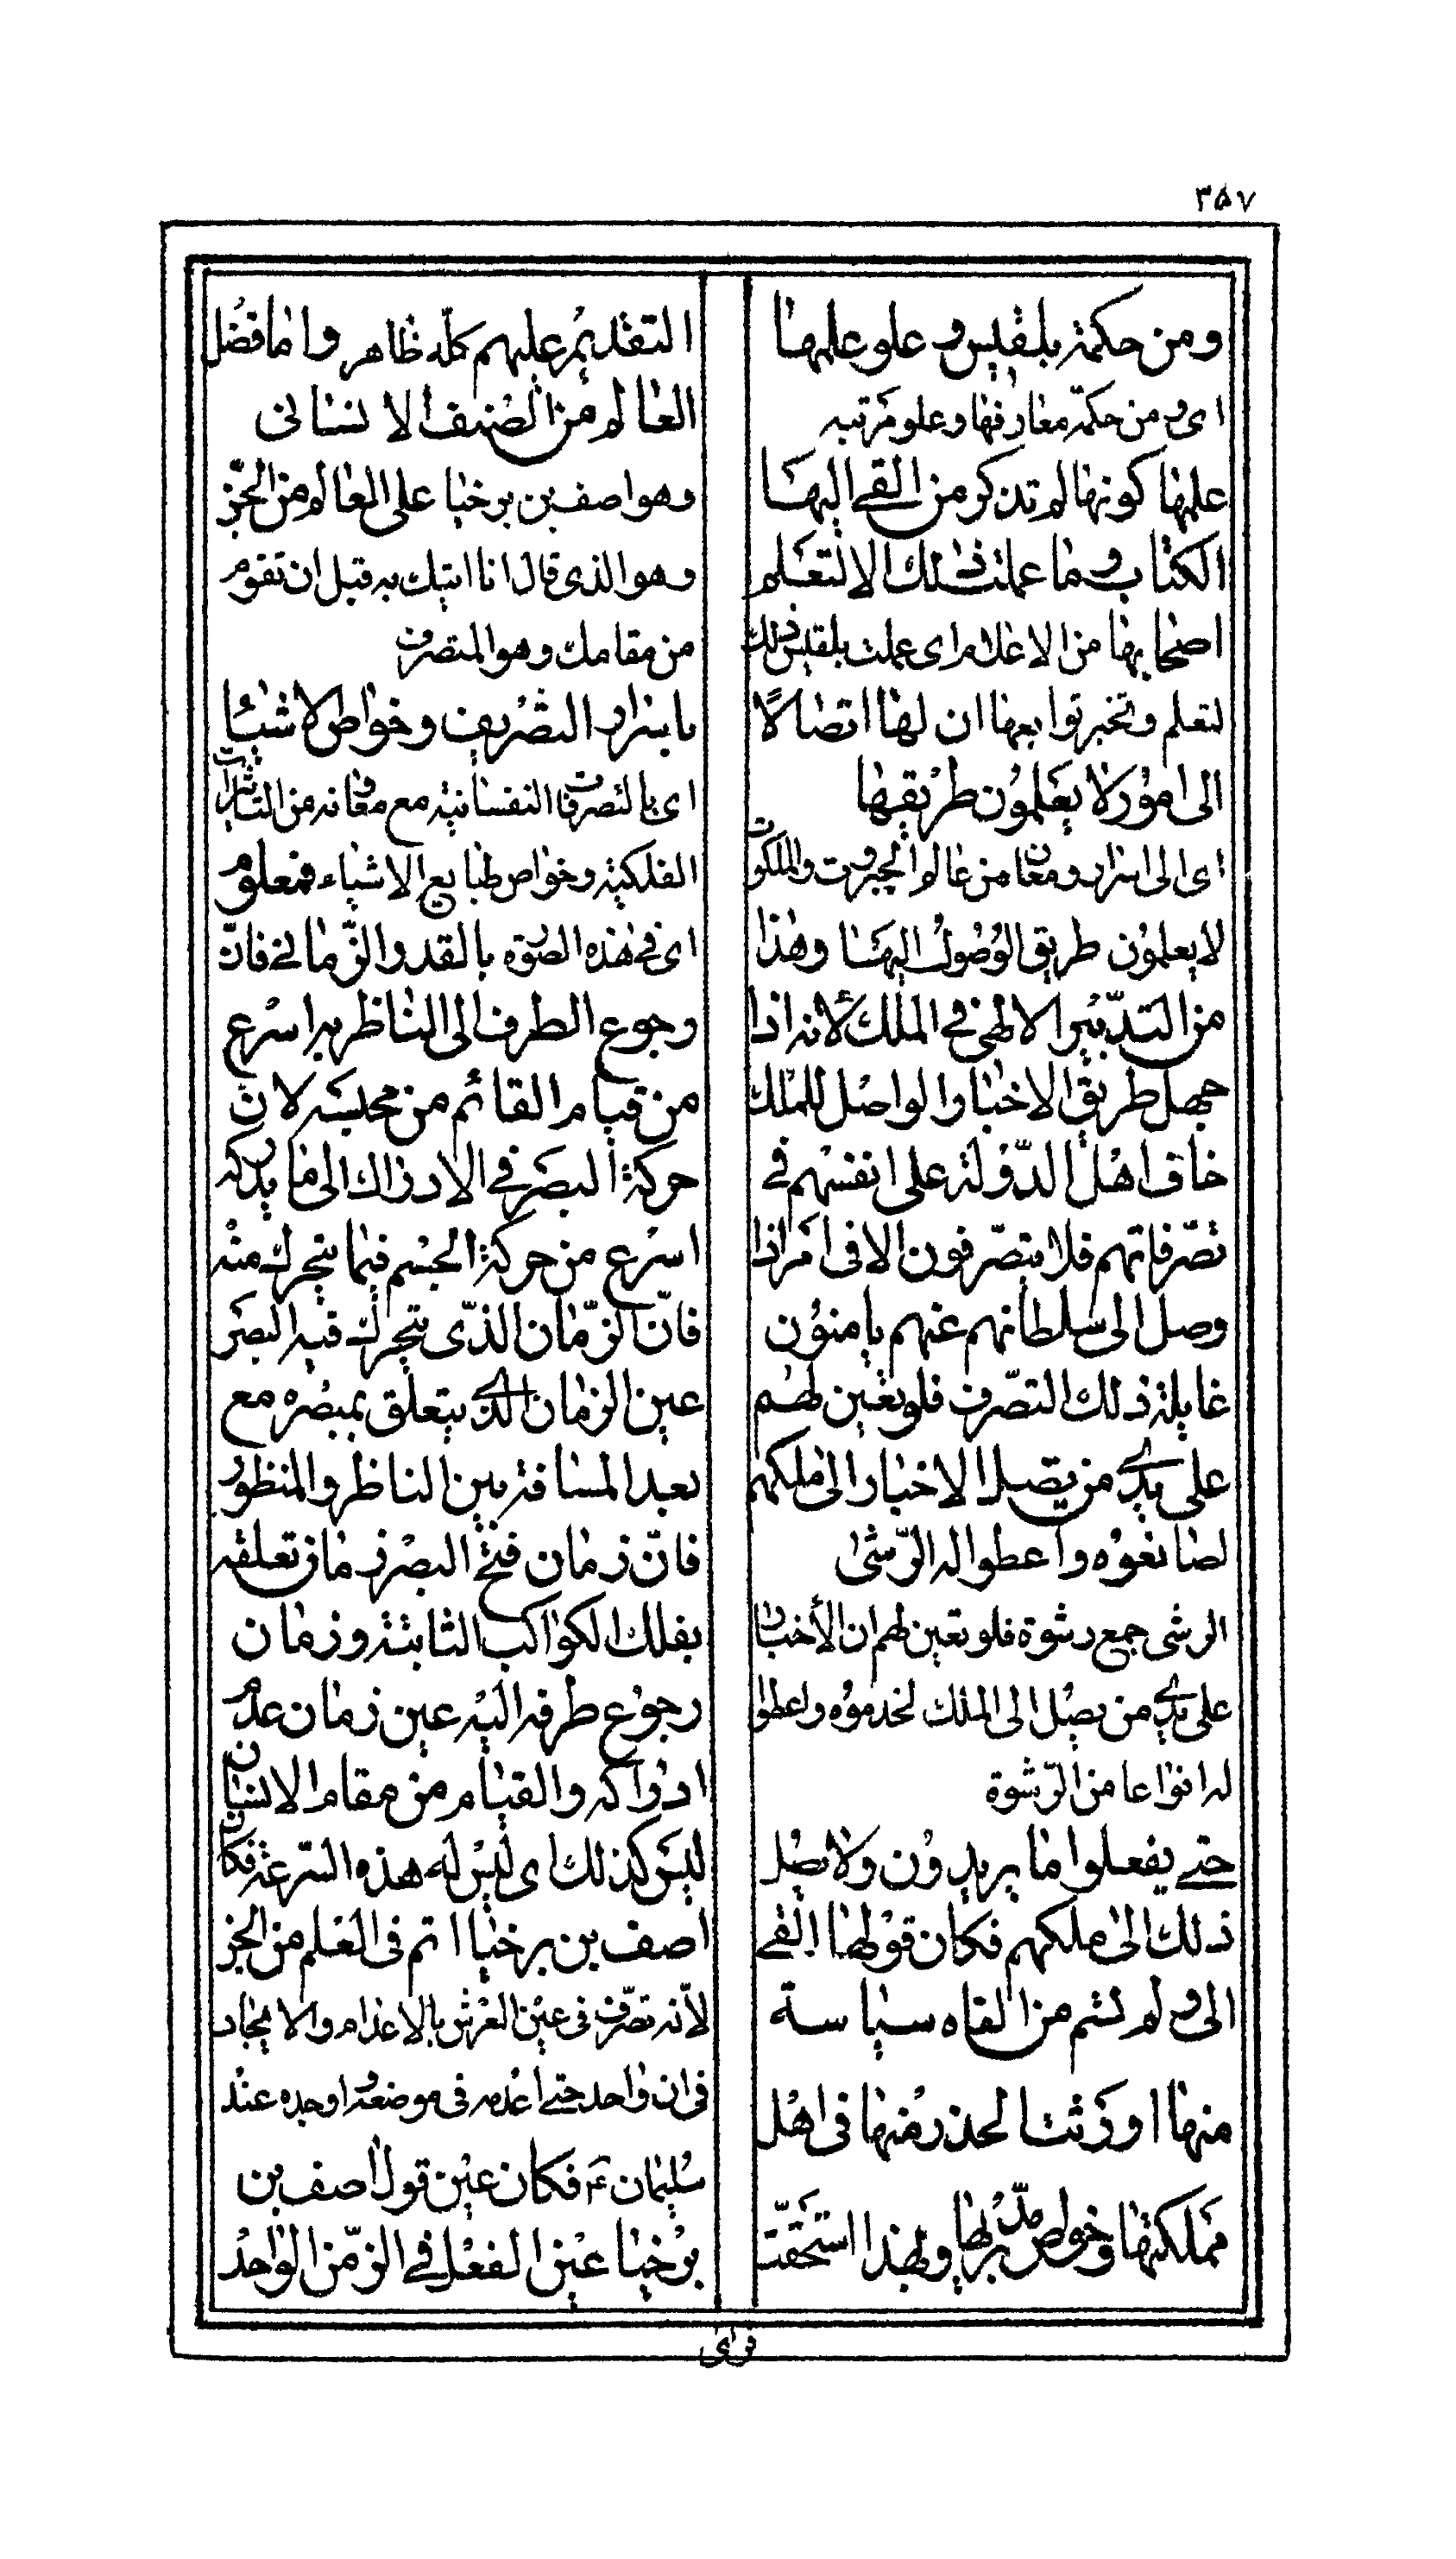 ۳۵۷
ومن حكمة بلقيس وعلو علمها
اى ومن حكمة معارفها وعلو مرتبة
علمها كونها لم تذكر من القى اليها
الكتاب وما عملت ذلك الا لتعلم
اصحابها من الاعلام اى عملت بلقيس ذلك
لتعلم وتخبر توابعها ان لها اتصالًا
الى امور لا يعلمون طريقها
اى الى اسرار ومعان من عالم الجبروت والملكوت
لا يعلمون طريق الوصول اليها وهذا
من التدبير الالهى فى الملك لانه اذا
جهل طريق الاخبار الواصل للملك
خاف اهل الدّولة على انفسهم فى
تصّرفاتهم فلا يتصّرفون الا فى امر اذا
وصل الى سلطانهم عنهم يامنون
غايلة ذلك التصّرف فلو تعين لهم
على يدى من يصل الاخبار الى ملكهم
لصانعوه واعطوا له الرّشى
الرشى جمع رشوة فلو تعين لهم ان الأخبار
على يدى من يصل الى الملك لخدموه واعطوا
له انواعا من الرّشوة
حتى يفعلوا ما يريدون ولا يصل
ذلك الى ملكهم فكان قولها القى
الى ولم تسم من القاه سياسة
منها اورثت الحذر منها فى اهل
مملكتها وخواص مدّبريها ولهذا استحقت
التقديم عليهم كلّه ظاهر واما فضل
العالم من الصنف الانسانى
وهو اصف بن برخيا على العالم من الجنّ
وهو الذى قال انا اتيك به قبل ان تقوم
من مقامك وهو المتصرف
باسرار التصريف وخواص الاشياء
اى بالتصرفات النفسانية مع معاونة من التاثيرات
الفلكية وخواص طبايع الاشياء فمعلوم
اى فى هذه الصورة بالقدر الزّمانى فانّ
رجوع الطرف الى الناظر به اسرع
من قيام القائم من مجلسه لان
حركة البصر فى الادراك الى ما يدركه
اسرع من حركة الجسم فيما يتحرك منه
فانّ الزّمان الذّى يتحرك فيه البصر
عين الزمان الذى يتعلق بمبصره مع
بعد المسافة بين الناظر والمنظور
فانّ زمان فتح البصر زمان تعلقه
بفلك الكواكب الثابتة وزمان
رجوع طرفه اليه عين زمان عدم
ادراكه والقيام من مقام الانسان
ليس كذلك اى ليس له هذه السّرعة فكان
اصف بن برخيا اتم فى العلم من الجن
لأنه تصّرف فى عين العرش بالاعدام والايجاد
فى ان واحد حتى اعدمه فى موضعه واوجده عند
سليمان ع فكان عين قول اصف بن
برخيا عين الفعل فى الزّمن الواحد
فراى